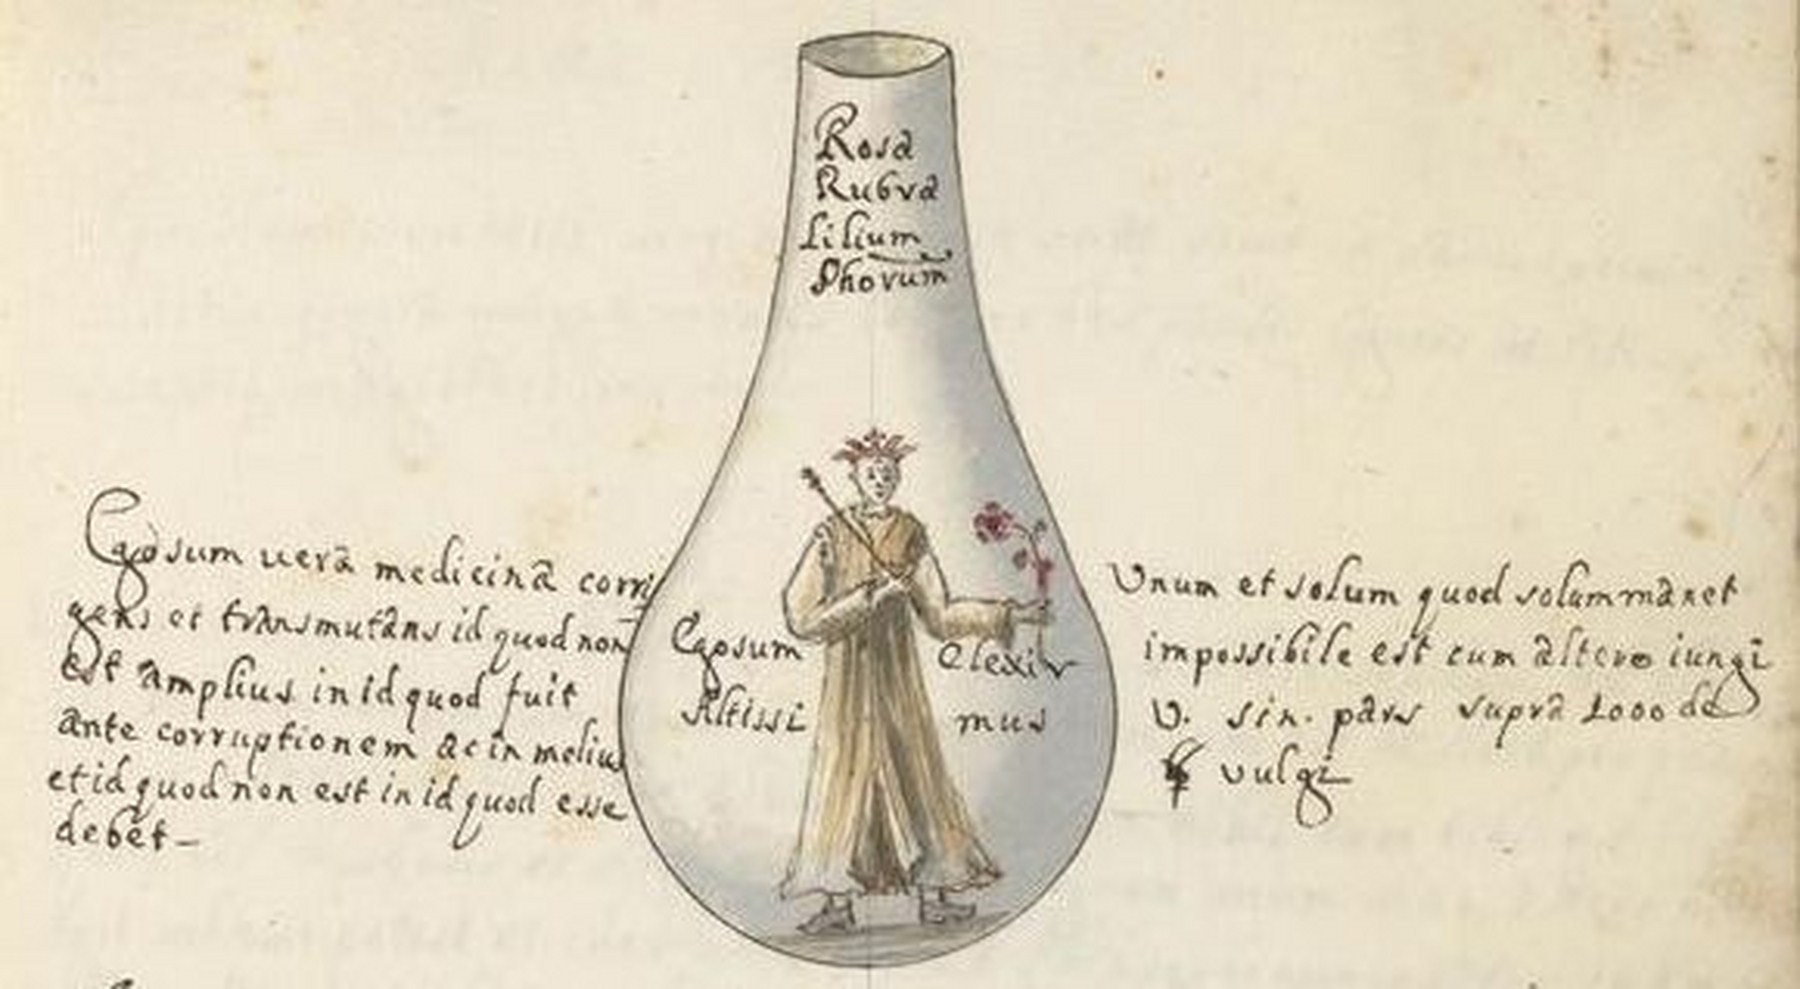 Rosa
Rubra
Lilium
Phorum
Egosum vera medicina corri
gens et transmutans id quod non
est amplius in id quod fuit
ante corruptionem ac in melius
et id quod non est in id quod esse
debet-
Egosum Elexir
Altissi mus
Vnum et solum quod solum manet
impossibile est cum altero iungi
v. sin. pars supra 1000 de
vulgi